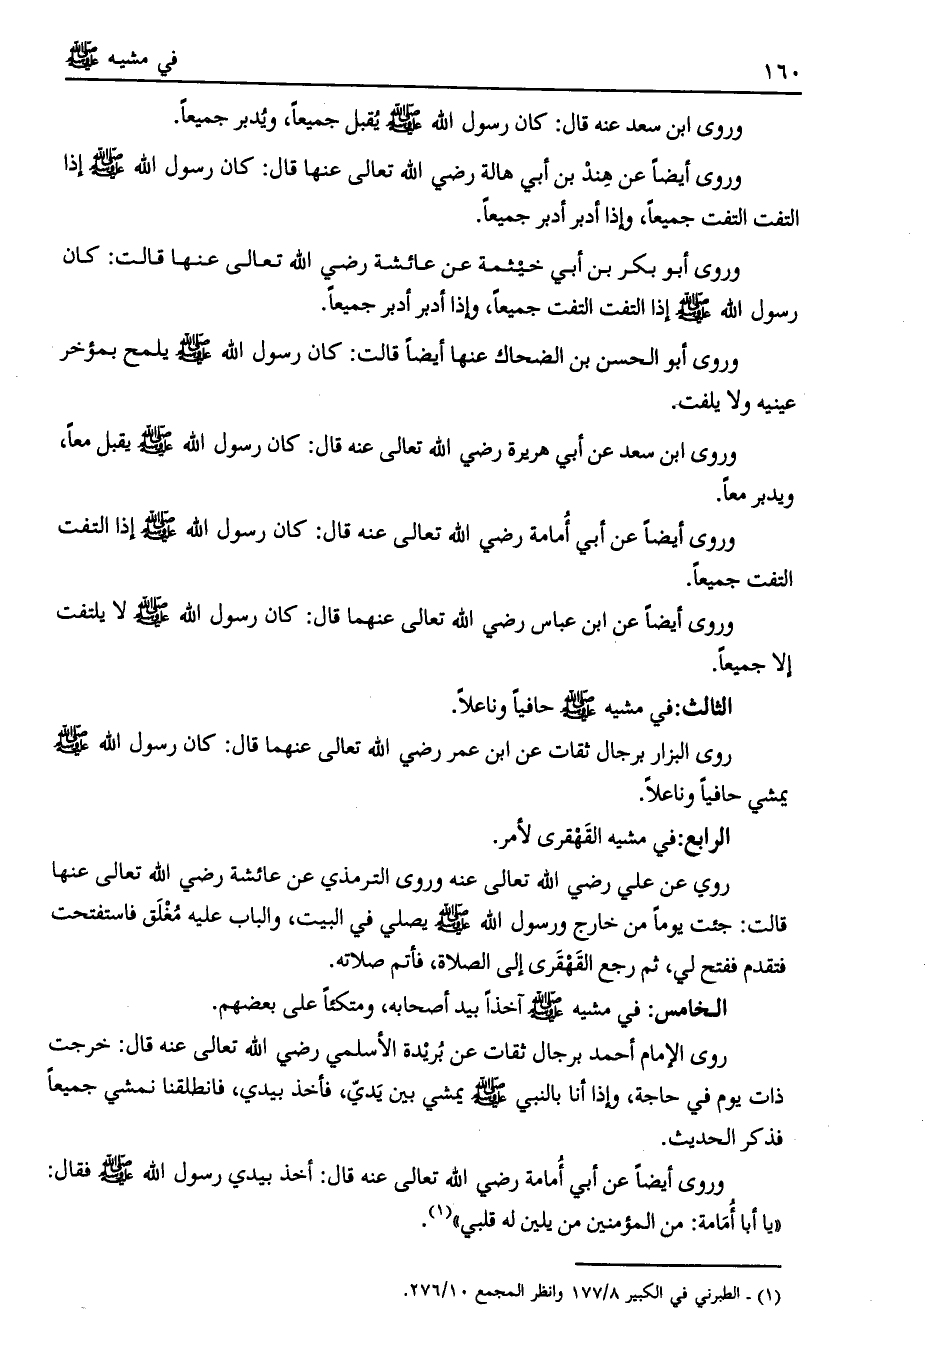 ١٦٠ في مشيه ﷺ
وروى ابن سعد عنه قال: كان رسول الله ﷺ يُقبل جميعاً، ويُدبر جميعاً.
وروى أيضاً عن هِندْ بن أبي هالة رضي الله تعالى عنها قال: كان رسول الله ﷺ إذا
التفت التفت جميعاً، وإذا أدبر أدبر جميعاً.
وروى أبو بكر بن أبي خيْثمة عن عائشة رضي الله تعالى عنها قالت: كان
رسول الله ﷺ إذا التفت التفت جميعاً، وإذا أدبر أدبر جميعاً.
وروى أبو الحسن بن الضحاك عنها أيضاً قالت: كان رسول الله ﷺ يلمح بمؤخر
عينيه ولا يلفت.
وروى ابن سعد عن أبي هريرة رضي الله تعالى عنه قال: كان رسول الله ﷺ يقبل معاً،
ويدبر معاً.
وروى أيضاً عن أبي أُمامة رضي الله تعالى عنه قال: كان رسول الله ﷺ إذا التفت
التفت جميعاً.
وروى أيضاً عن ابن عباس رضي الله تعالى عنهما قال: كان رسول الله ﷺ لا يلتفت
إلا جميعاً.
الثالث:في مشيه ﷺ حافياً وناعلاً.
روى البزار برجال ثقات عن ابن عمر رضي الله تعالى عنهما قال: كان رسول الله ﷺ
يمشي حافياً وناعلاً.
الرابع:في مشيه القَهْقرى لأمر.
روي عن علي رضي الله تعالى عنه وروى الترمذي عن عائشة رضي الله تعالى عنها
قالت: جئت يوماً من خارج ورسول الله ﷺ يصلي في البيت، والباب عليه مُغْلَق فاستفتحت
فتقدم ففتح لي، ثم رجع القَهْقَرى إلى الصلاة، فأتم صلاته.
الخامس: في مشيه ﷺ آخذاً بيد أصحابه، ومتكئاً على بعضهم.
روى الإمام أحمد برجال ثقات عن بُريْدة الأسلمي رضي الله تعالى عنه قال: خرجت
ذات يوم في حاجة، وإذا أنا بالنبي ﷺ يمشي بين يَديّ، فأخذ بيدي، فانطلقنا نمشي جميعاً
فذكر الحديث.
وروى أيضاً عن أبي أُمامة رضي الله تعالى عنه قال: أخذ بيدي رسول الله ﷺ فقال:
«يا أبا أُمَامة: من المؤمنين من يلين له قلبي»(١).
(١) - الطبرني في الكبير ١٧٧/٨ وانظر المجمع ٢٧٦/١٠.